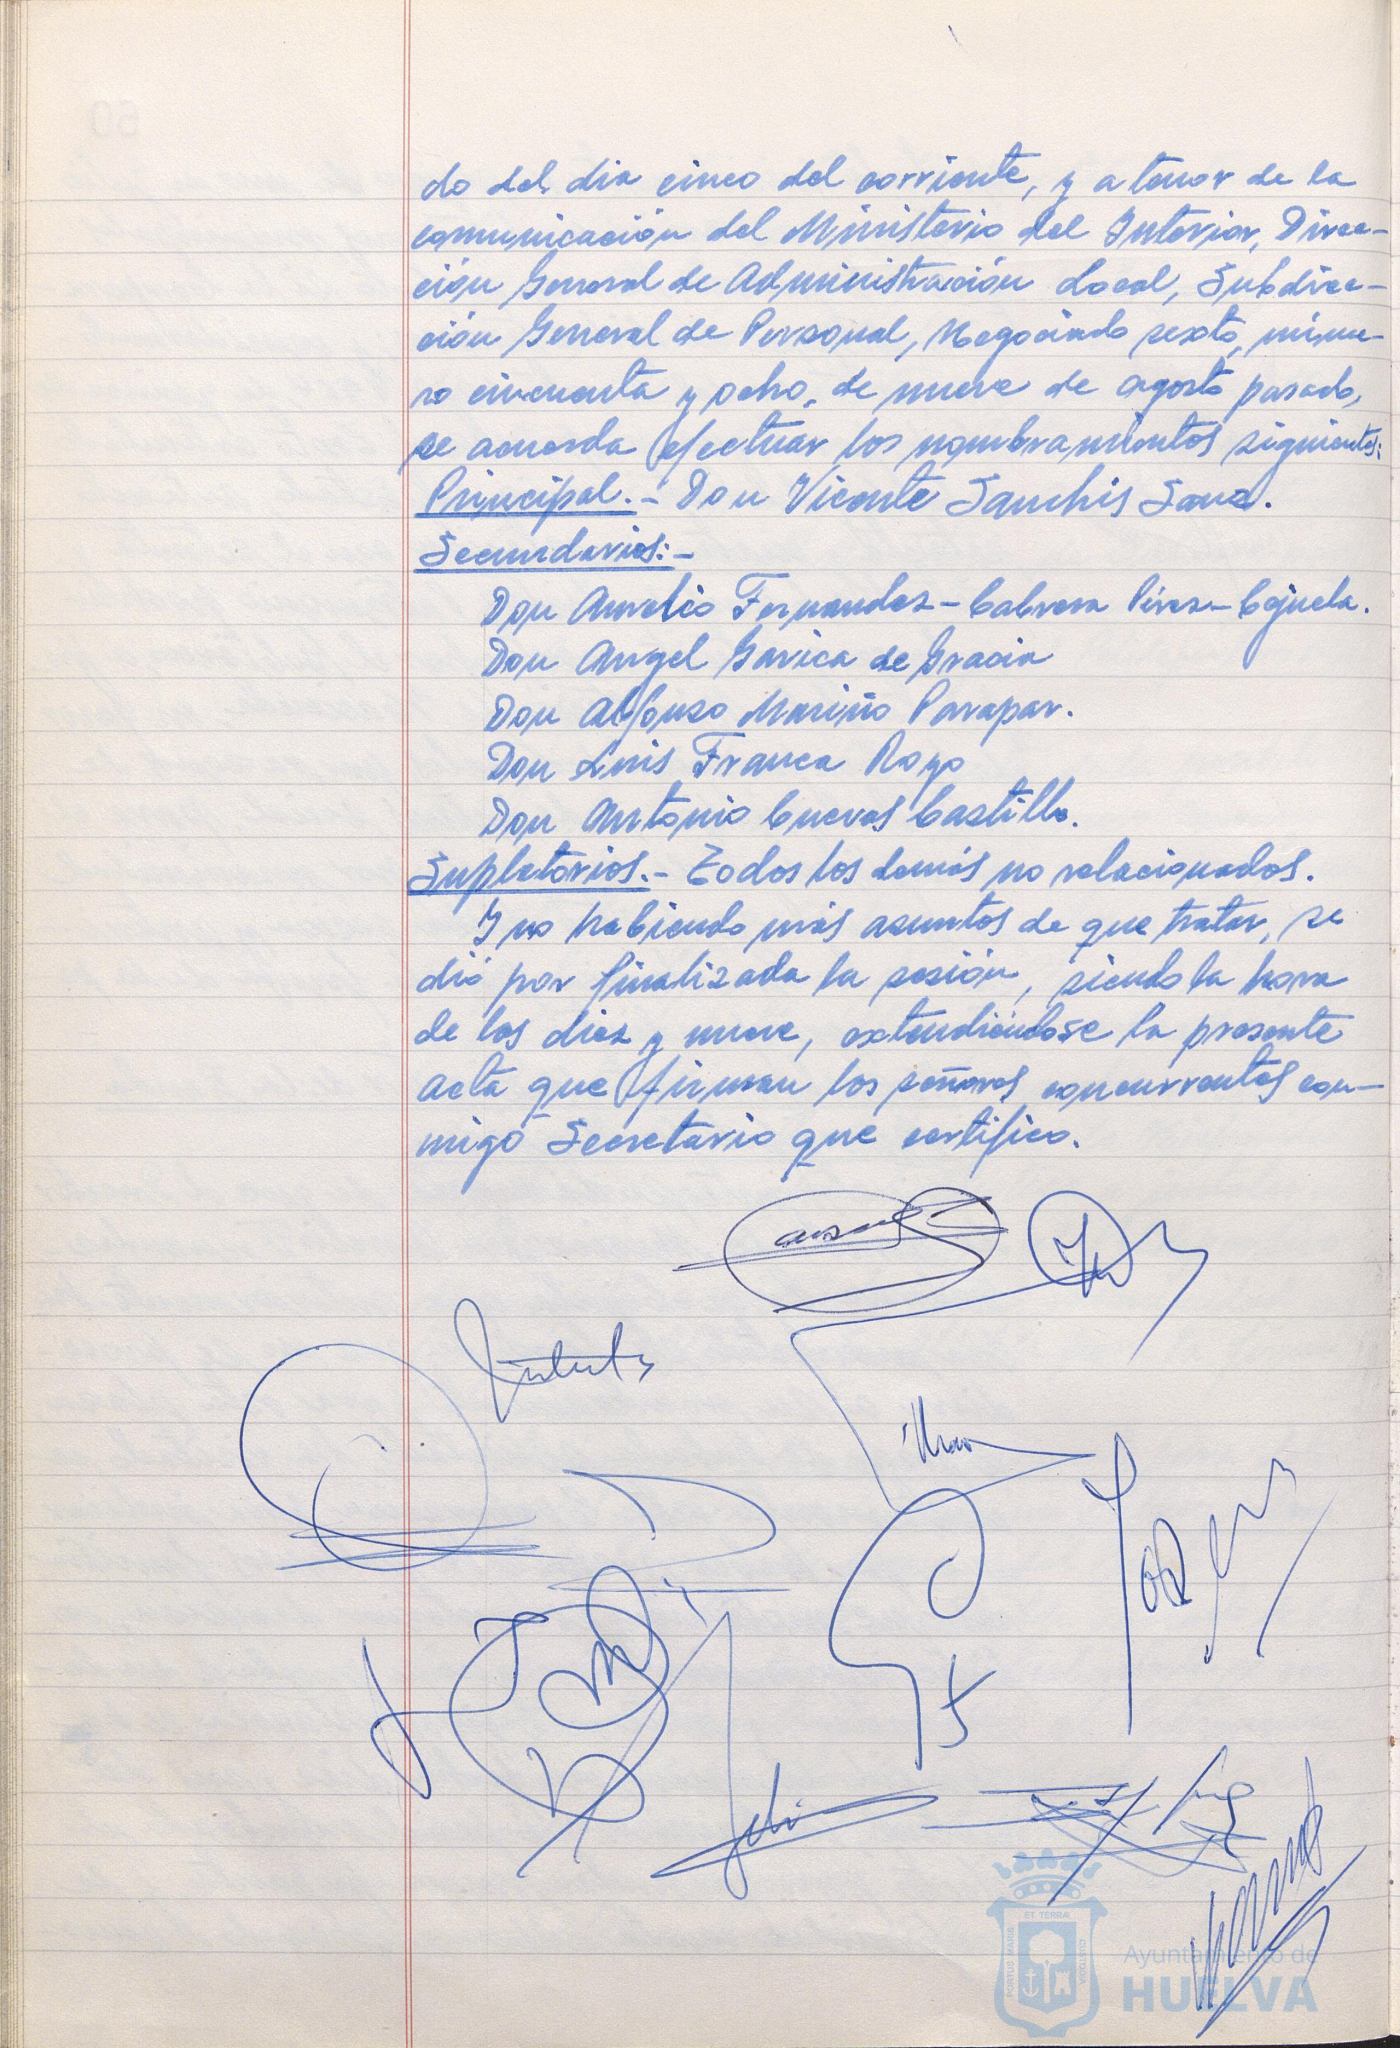 do del dia cinco del corriente, y a tenor de la
comunicación del Ministerio del Interior, Direc-
ción General de Administración Local, Subdirec-
ción General de Personal, Negociado sexto, núme-
ro cincuenta y ocho, de nueve de agosto pasado,
se acuerda efectuar los nombramientos siguientes:
Principal.- Don Vicente Sanchis Sanz.
Secundarios:-
Don Aurelio Fernandez-Cabrera Pérez-Cejuela.
Don Angel Garica de Gracia
Don Alfonso Mariño Parapar.
Don Luis Franca Royo
Don Antonio Cuevas Castillo.
Supletorios.- Todos los demás no relacionados.
Y no habiendo más asuntos de que tratar, se
dió por finalizada la sesión, siendo la hora
de las diez y nueve, extendiéndose la presente
acta que firman los señores concurrentes con-
migo Secretario que certifico.
PORTUS MARIS ET TERRAE CUSTODIA
Ayuntamiento de
HUELVA